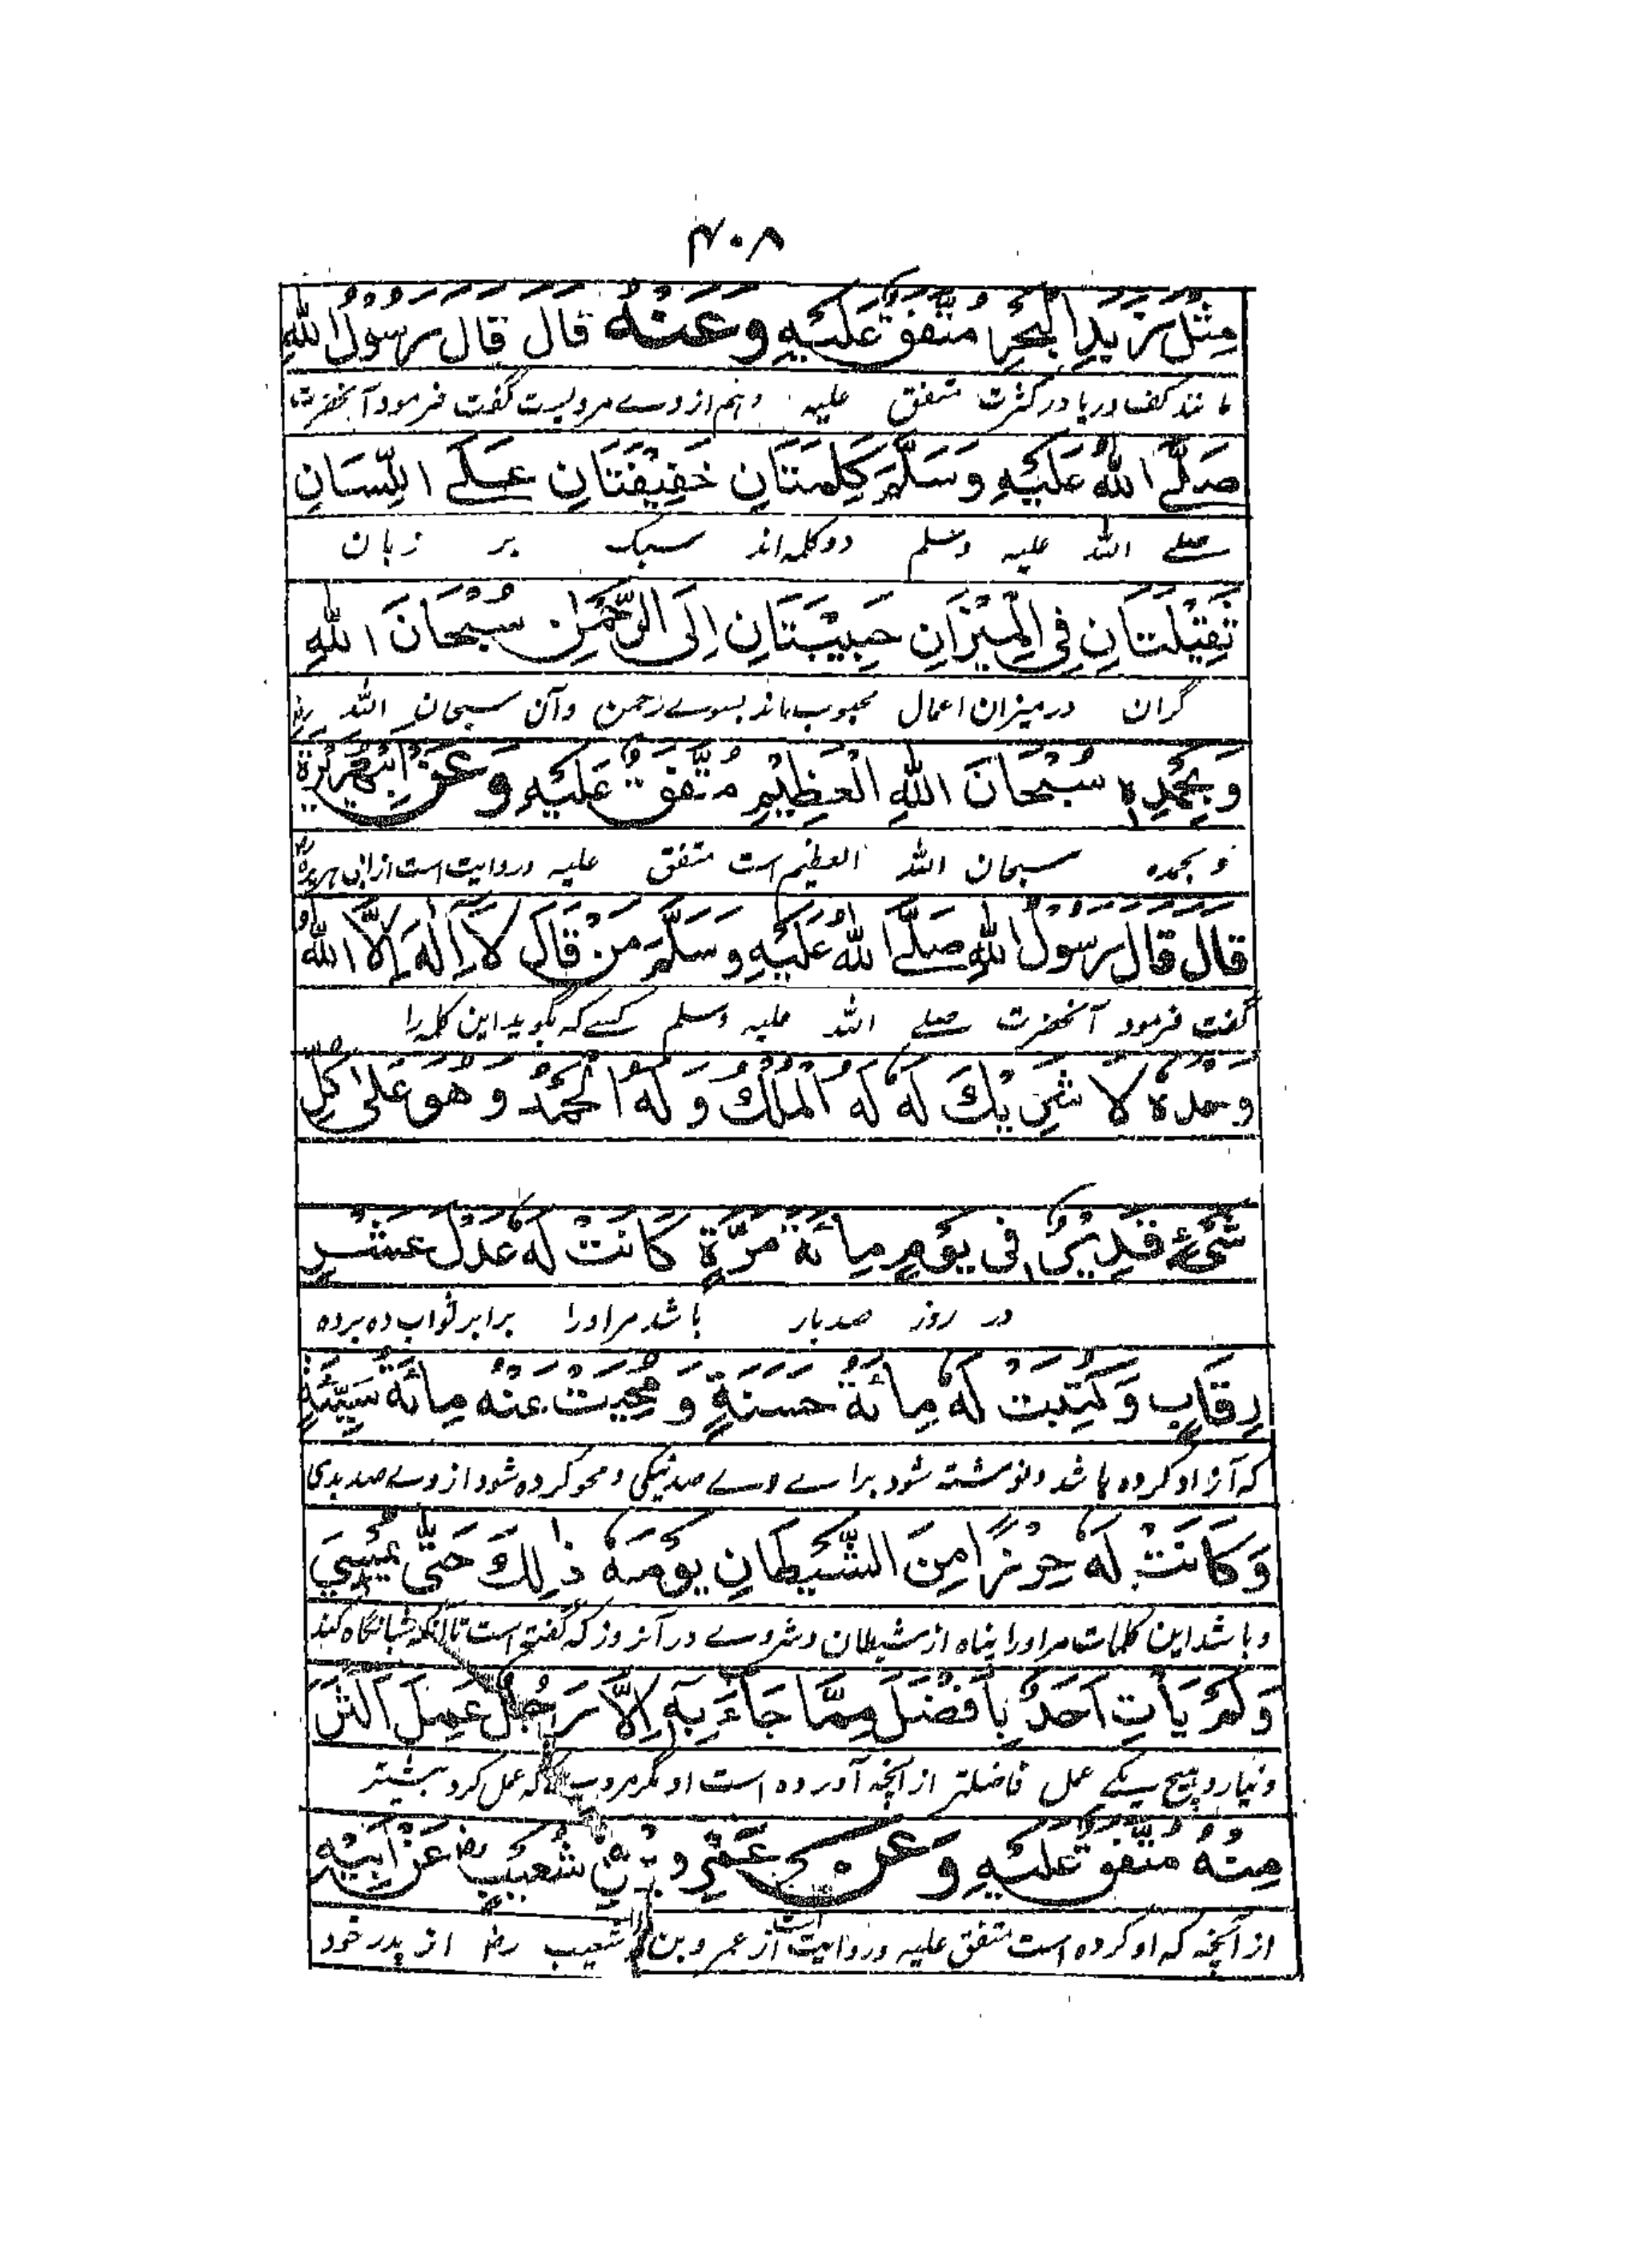 ۴۰۸
مِثْلَ زَبَدِ الْبَحْرِ مُتَّفَقٌ عَلَيْهِ وَعَنْهُ قَالَ قَالَ رَسُوْلُ اللّٰهِ
مانند کف دریا در کثرت متفق علیہ وہم از وے مرویست گفت فرمود آنحضرت
صَلَّے اللّٰهُ عَلَيْهِ وَسَلَّمَ كَلِمَتَانِ خَفِيْفَتَانِ عَلَے اللِّسَانِ
صلے اللہ علیہ وسلم دو کلمہ اند سبک بر زبان
ثَقِيْلَتَانِ فِي الْمِيْزَانِ حَبِيْبَتَانِ اِلَى الرَّحْمٰنِ سُبْحَانَ اللّٰهِ
گران در میزان اعمال محبوب اند بسوے رحمن وآن سبحان اللہ
وَبِحَمْدِهٖ سُبْحَانَ اللّٰهِ الْعَظِيْمِ مُتَّفَقٌ عَلَيْهِ وَعَنْ اَبِيْ هُرَيْرَةَ
و بحمدہ سبحان اللہ العظیم است متفق علیہ وروایت است از ابی ہریرہ
قَالَ قَالَ رَسُوْلُ اللّٰهِ صَلَّے اللّٰهُ عَلَيْهِ وَسَلَّمَ مَنْ قَالَ لَا اِلٰهَ اِلَّا اللّٰهُ
گفت فرمود آنحضرت صلے اللہ علیہ وسلم کسے کہ بگوید این کلمہ را
وَحْدَهٗ لَا شَرِيْكَ لَهٗ لَهُ الْمُلْكُ وَلَهُ الْحَمْدُ وَهُوَ عَلٰى كُلِّ
شَيْءٍ قَدِيْرٌ فِي يَوْمٍ مِائَةَ مَرَّةٍ كَانَتْ لَهٗ عَدْلَ عَشْرِ
در روز صدبار باشد مر اورا برابر ثواب دہ بردہ
رِقَابٍ وَكُتِبَتْ لَهٗ مِائَةُ حَسَنَةٍ وَمُحِيَتْ عَنْهُ مِائَةُ سَيِّئَةٍ
کہ آزاد کردہ باشد ونوشتہ شود براے وے صد نیکی ومحو کردہ شود از وے صد بدی
وَكَانَتْ لَهٗ حِرْزًا مِنَ الشَّيْطَانِ يَوْمَهٗ ذٰلِكَ حَتّٰى يُمْسِيَ
وباشد این کلمات مر اورا پناہ از شیطان وشر وے در آنروز کہ گفتہ است تا آنکہ شبانگاہ کند
وَلَمْ يَأْتِ اَحَدٌ بِاَفْضَلَ مِمَّا جَاءَ بِهٖ اِلَّا رَجُلٌ عَمِلَ اَكْثَرَ
ونیارد ہیچ یکے عمل فاضلتر از آنچہ آوردہ است او مگر مردے کہ عمل کرد بیشتر
مِنْهُ مُتَّفَقٌ عَلَيْهِ وَعَنْ عَمْرِو بْنِ شُعَيْبٍ رض عَنْ اَبِيْهِ
از آنچہ کہ او کردہ است متفق علیہ وروایت است از عمرو بن شعیب رض از پدر خود